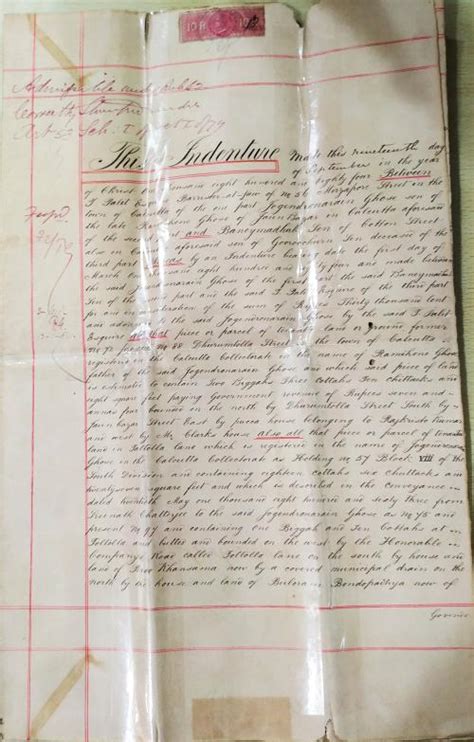 Admissible and
Act Sch. I of 1879
This Indenture Made this nineteenth day
of September in the year
of Christ One thousand eight hundred and eighty four Between
T. Palit Esquire Barrister-at-law of No 56 Mirzapore Street in the
town of Calcutta of the one part Jogendronarain Ghose son of
the late Ramdhone Ghose of Jaun Bazar in Calcutta aforesaid
of the second part and Banoymadhab Sen of Colton Street
also in Calcutta aforesaid son of Sen deceased of the
third part Whereas by an Indenture bearing date the first day of
March One thousand eight hundred and eighty four and made between
the said Jogendronarain Ghose of the first part the said Banoymadhab
Sen of the second part and the said T. Palit Esquire of the third part
for and in consideration of the sum of Rupees Thirty thousand lent
and advanced to the said Jogendronarain Ghose by the said T. Palit
Esquire all that piece or parcel of land or ground former
No 72 present No 88 Dhurumtollah Street in the town of Calcutta
registered in the Calcutta Collectorate in the name of Ramdhone Ghose
father of the said Jogendronarain Ghose and which said piece of land
is estimated to contain Two Biggahs Three Cottahs Ten Chittacks and
eight square feet paying Government revenue of Rupees seven and
annas four bounded on the north by Dhurumtollah Street South by
Jaun bazar Street East by pucca house belonging to Rajkristo
and west by Mr. Clarks house also all that piece or parcel of
land in Toltollah lane which is registered in the name of Jogendronarain
Ghose in the Calcutta Collectorate as Holding No 57 Block VIII of the
South Division and containing eighteen cottahs six chittacks and
twentyseven square feet and which is described in the conveyance
dated twentieth May one thousand eight hundred and sixty three from
Sreenath Chatterjee to the said Jogendronarain Ghose as No 75 and
present No 97 and containing one Biggah and Ten Cottahs at
Toltollah and butted and bounded on the west by the Honorable
Companys Road called Toltollah lane on the south by house and
land of Khansama now by a covered municipal drain on the
north by the house and land of Buloram Bondopadhya now of
Govind